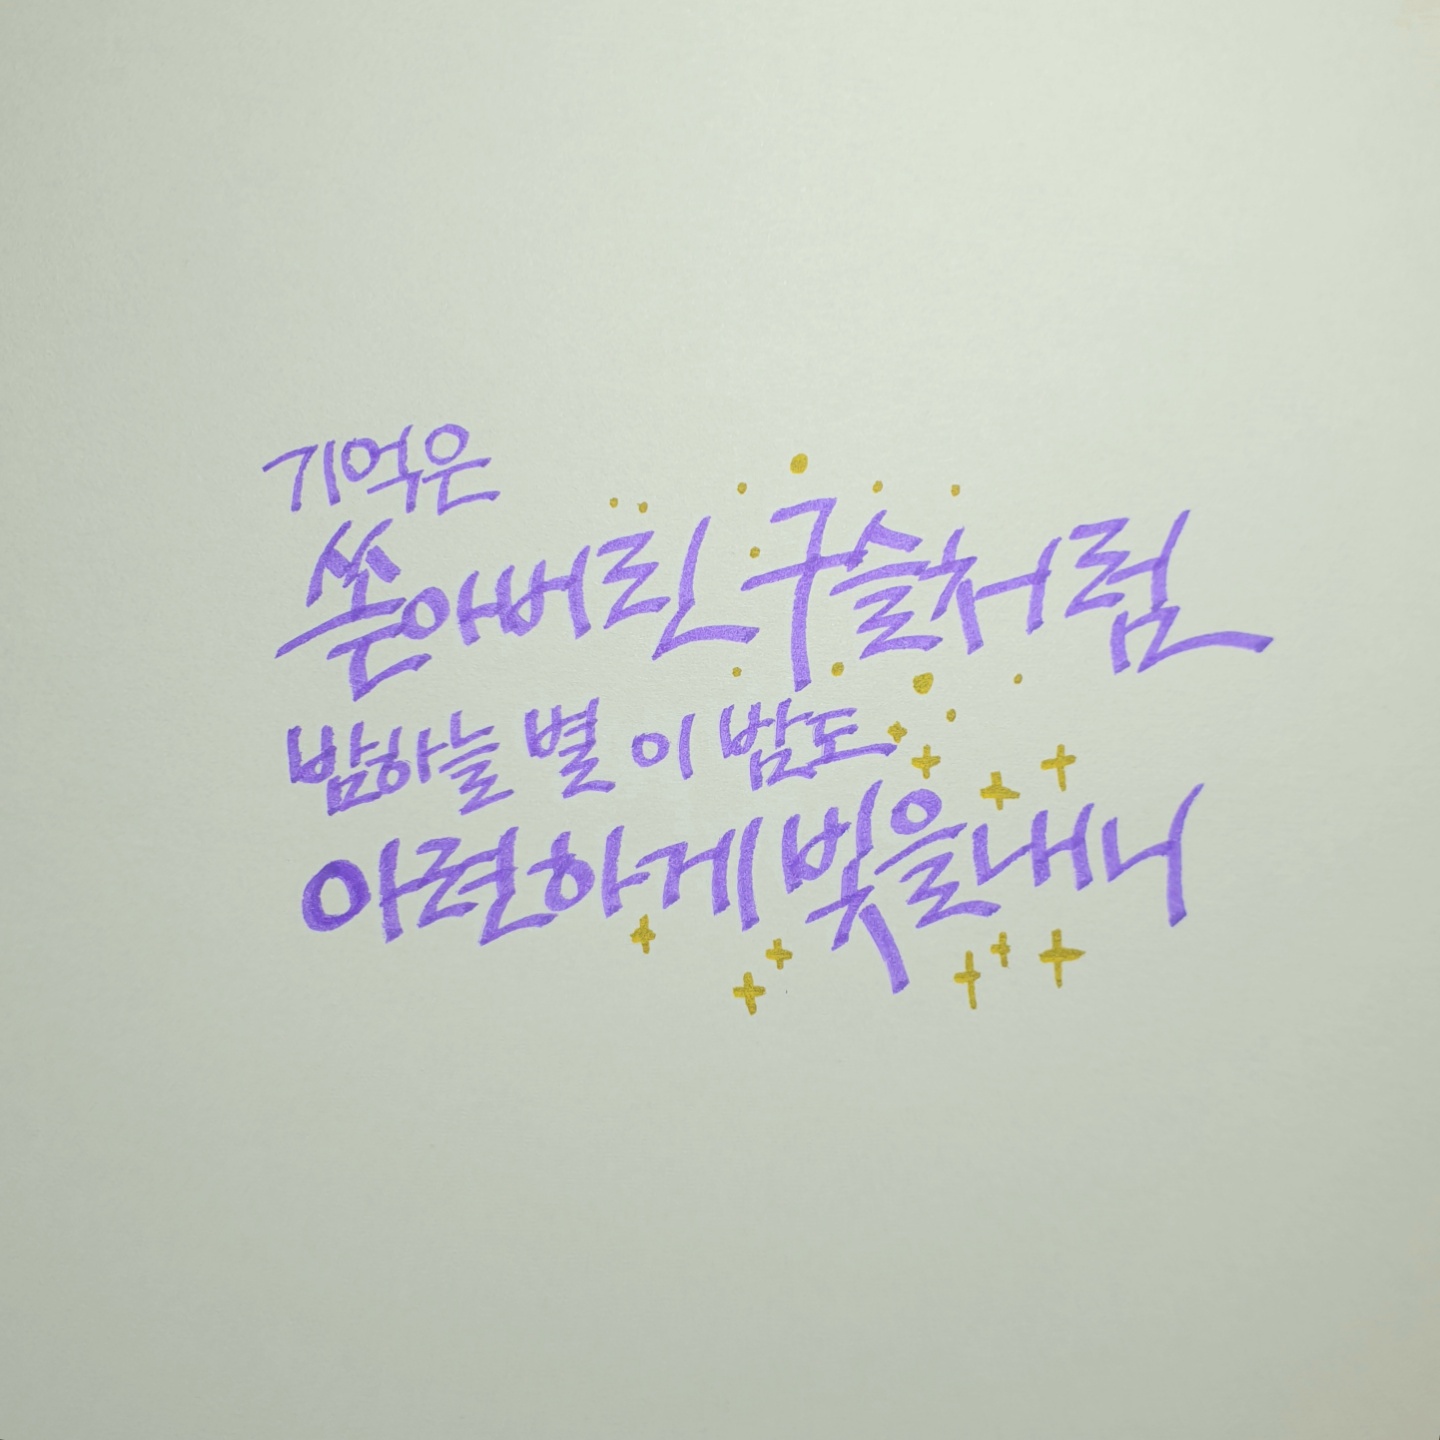 기억은
쏟아버린 구슬처럼
밤하늘 별 이 밤도
아련하게 빛을내니